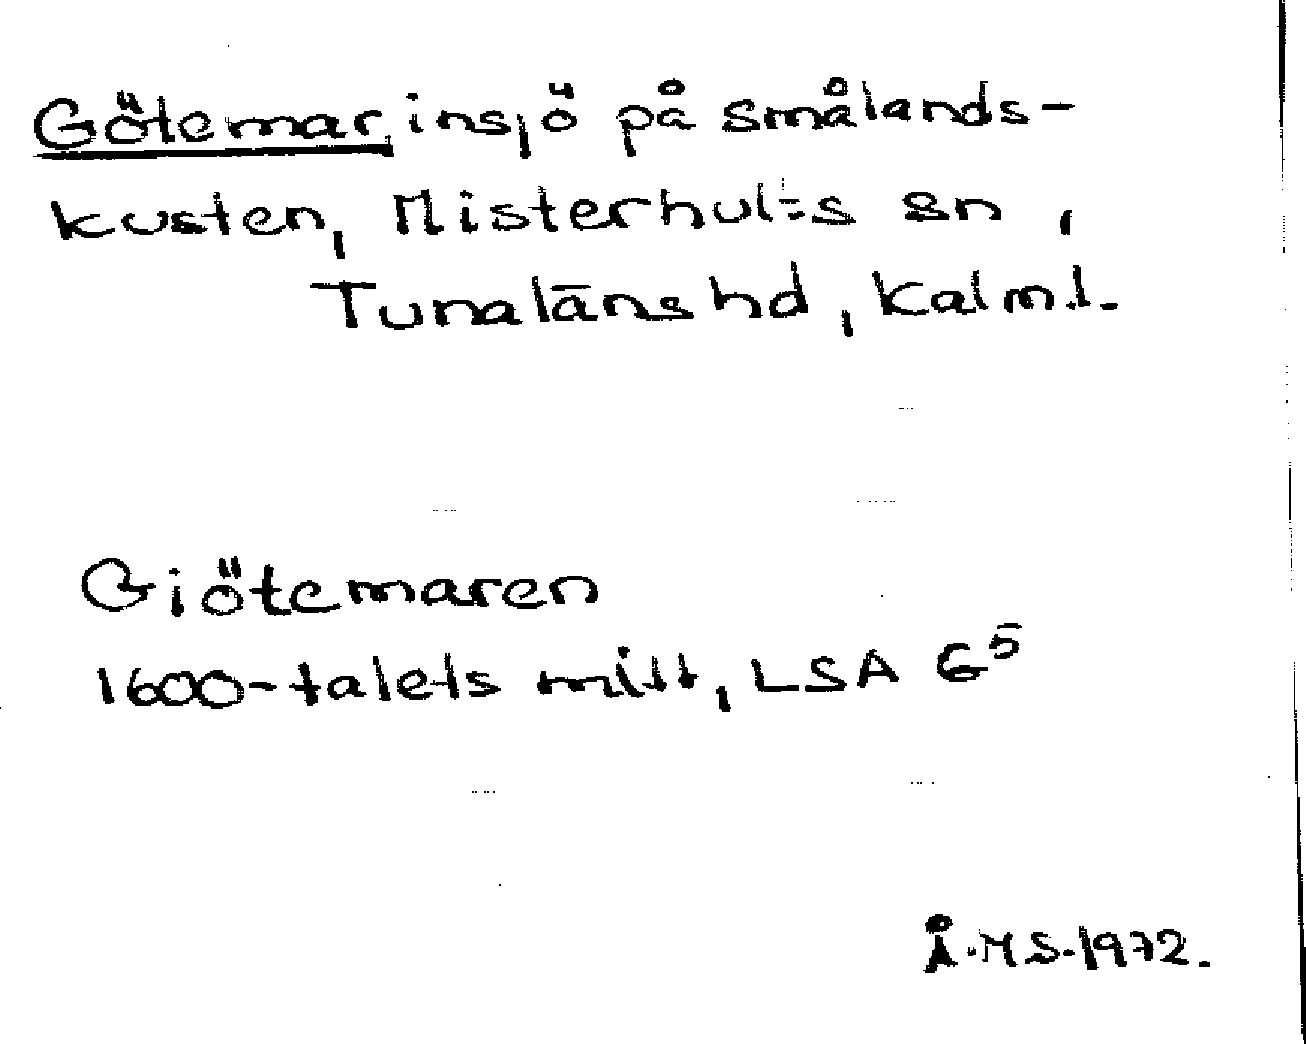 Götemar, insjö på smålands-
kusten, Misterhults sn,
Tunaläns hd, Kalm.l.
Giötemaren
1600-talets mitt, LSA G⁵
Å.M S.1972.